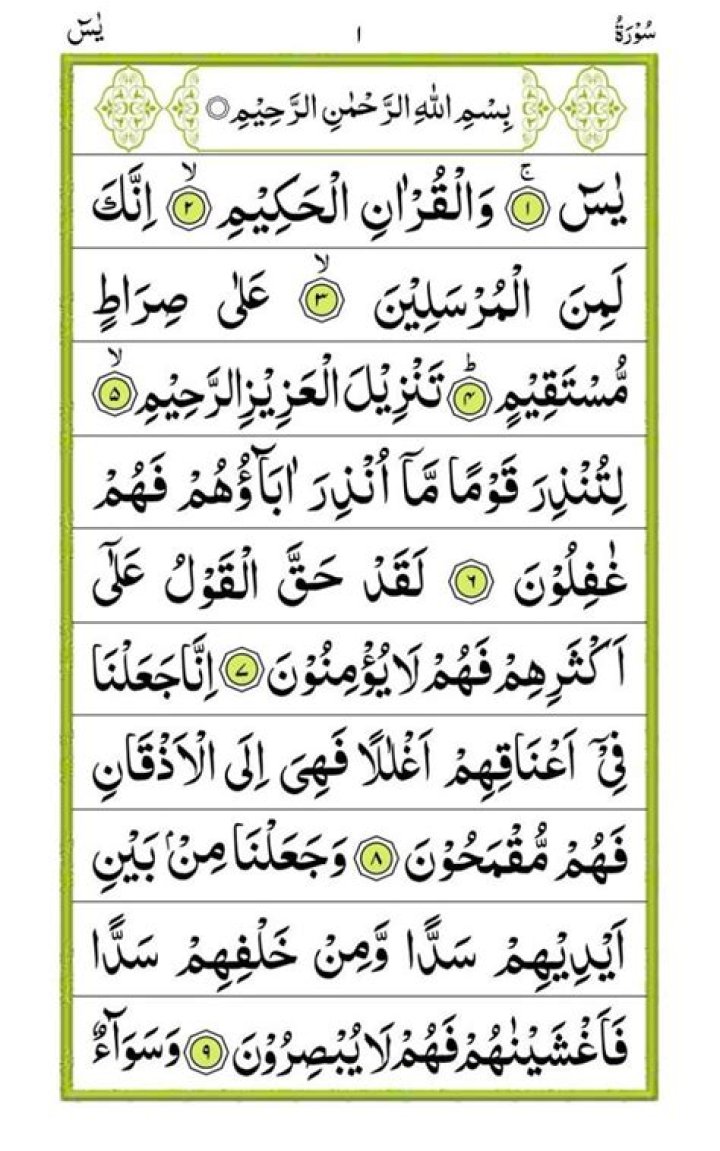 سُوْرَةُ ١ يٰسٓ
بِسْمِ اللهِ الرَّحْمٰنِ الرَّحِيْمِ
يٰسٓ ۚ ﴿١﴾ وَالْقُرْاٰنِ الْحَكِيْمِ ۙ ﴿٢﴾ اِنَّكَ
لَمِنَ الْمُرْسَلِيْنَ ۙ ﴿٣﴾ عَلٰى صِرَاطٍ
مُّسْتَقِيْمٍ ؕ ﴿۴﴾ تَنْزِيْلَ الْعَزِيْزِ الرَّحِيْمِ ۙ ﴿۵﴾
لِتُنْذِرَ قَوْمًا مَّاۤ اُنْذِرَ اٰبَآؤُهُمْ فَهُمْ
غٰفِلُوْنَ ﴿٦﴾ لَقَدْ حَقَّ الْقَوْلُ عَلٰٓى
اَكْثَرِهِمْ فَهُمْ لَا يُؤْمِنُوْنَ ﴿٧﴾ اِنَّا جَعَلْنَا
فِيْٓ اَعْنَاقِهِمْ اَغْلٰلًا فَهِيَ اِلَى الْاَذْقَانِ
فَهُمْ مُّقْمَحُوْنَ ﴿٨﴾ وَجَعَلْنَا مِنْۢ بَيْنِ
اَيْدِيْهِمْ سَدًّا وَّمِنْ خَلْفِهِمْ سَدًّا
فَاَغْشَيْنٰهُمْ فَهُمْ لَا يُبْصِرُوْنَ ﴿٩﴾ وَسَوَآءٌ